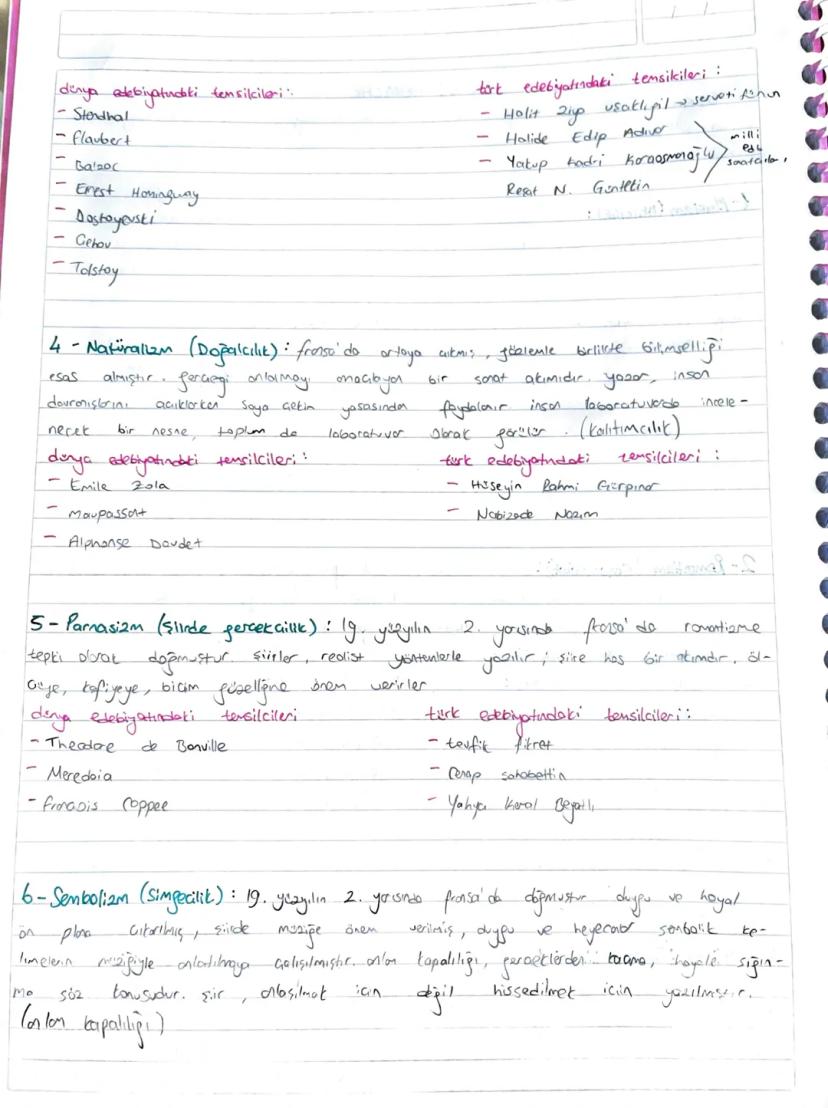 dünya edebiyatındaki temsilcileri:
- Stendhal
- flaubert
- Balzac
- Ernest Hemingway
- Dostoyevski
- Çehov
- Tolstoy
türk edebiyatındaki temsilcileri:
- Halit Ziya uşaklıgil → serveti fünun
- Halide Edip Adıvar
- Yakup kadri Karaosmanoğlu
Reşat N. Güntekin
milli
edb
sanatçıları
4 - Natüralizm (Doğalcılık): fransa'da ortaya çıkmış, gözlemle birlikte bilimselliği
esas almıştır. gerçeği anlamayı amaçlayan bir sanat akımıdır. yazar, insan
davranışlarını açıklarken soya çekim yasasından faydalanır insan laboratuvarda incele-
necek bir nesne, toplum da laboratuvar olarak görülür. (kalıtımcılık)
dünya edebiyatındaki temsilcileri:
- Emile Zola
- Maupassant
- Alphonse Daudet
türk edebiyatındaki temsilcileri:
- Hüseyin Rahmi Gürpınar
- Nabizade Nazım
5 - Parnasizm (Şiirde gerçekçilik): 19. yüzyılın 2. yarısında fransa'da romantizme
tepki olarak doğmuştur. şiirler, realist yöntemlerle yazılır; şiire has bir akımdır. öl-
çüye, kafiyeye, biçim güzelliğine önem verirler
dünya edebiyatındaki temsilcileri
- Theodore de Banville
- Meredoia
- francois Coppee
türk edebiyatındaki temsilcileri:
- tevfik fikret
- Cenap şahabettin
- Yahya Kemal Beyatlı
6 - Sembolizm (Simgecilik): 19. yüzyılın 2. yarısında fransa'da doğmuştur duygu ve hayal
ön plana çıkarılmış, şiirde müziğe önem verilmiş, duygu ve heyecanlar sembolik ke-
limelerin müziğiyle anlatılmaya çalışılmıştır. anlam kapalılığı, gerçeklerden kaçma, hayale sığın-
ma söz konusudur. şiir, anlaşılmak için değil hissedilmek için yazılmıştır.
(anlam kapalılığı)